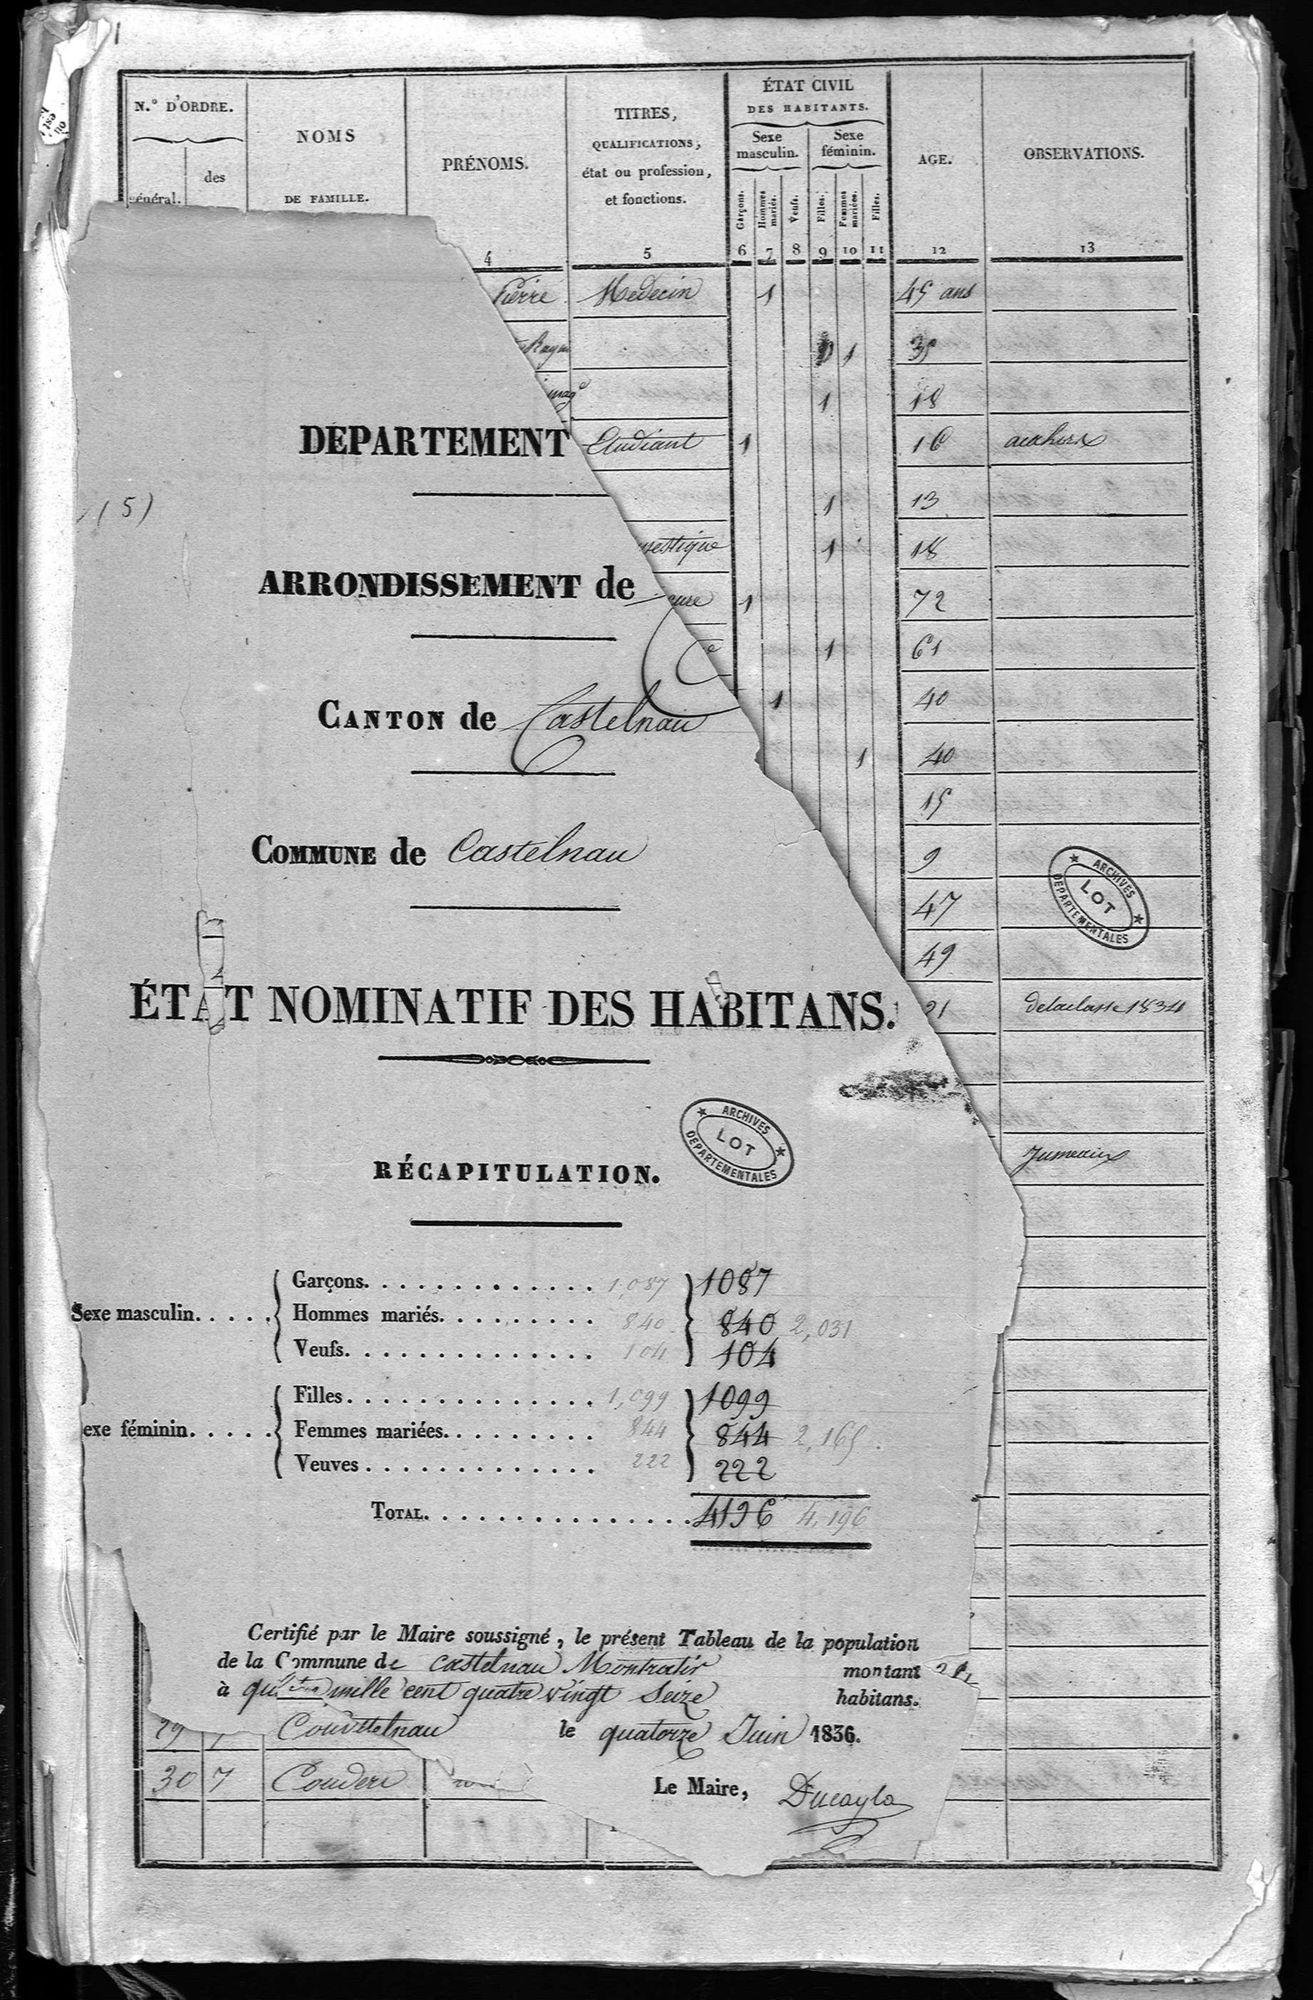 N.º D'ORDRE.
général.
des
NOMS
DE FAMILLE.
PRÉNOMS.
TITRES,
QUALIFICATIONS,
état ou profession,
et fonctions.
ÉTAT CIVIL
DES HABITANTS.
Sexe masculin.
Sexe féminin.
Garçons.
Hommes mariés.
Veufs.
Filles.
Femmes mariées.
Filles.
AGE.
OBSERVATIONS.
4 5 6 7 8 9 10 11 12 13
Pierre Medecin 1 45 ans
1 35
1 18
Etudiant 1 16
1 13
1 18
1 72
1 61
1 40
1 40
15
9
47
49
31
Jumeaux
(5)
DEPARTEMENT
ARRONDISSEMENT de
CANTON de Castelnau
COMMUNE de Castelnau
ÉTAT NOMINATIF DES HABITANS.
RÉCAPITULATION.
ARCHIVES
LOT
DEPARTEMENTALES
ARCHIVES
LOT
DEPARTEMENTALES
Sexe masculin.
Garçons. 1,087 1087
Hommes mariés. 840 840 2,031
Veufs. 104 104
exe féminin.
Filles. 1,099 1099
Femmes mariées. 844 844 2,165.
Veuves. 222 222
TOTAL. 4196 4,196
Certifié par le Maire soussigné, le présent Tableau de la population
de la Commune de Castelnau Montratier montant
à mille cent quatre vingt Seize habitans.
le quatorze Juin 1836.
Le Maire, Ducayla
29
30 7 Couderc